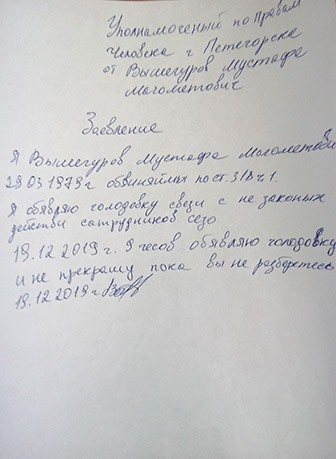 Уполнамоченый по Правам
Человека г Петегорска
от Вышегуров Мустафа
Магометович
Заевление
Я Вышегуров Мустафа Магометович
29.03 1979г обвиняймых по ст. 318 ч 1.
Я обявляю голодовку свези с не законых
действи сатрудников сезо
19.12 2019 г. 9 часов обявляю голодовку
и не прекращу пока вы не разберетесь
19.12 2019 г.